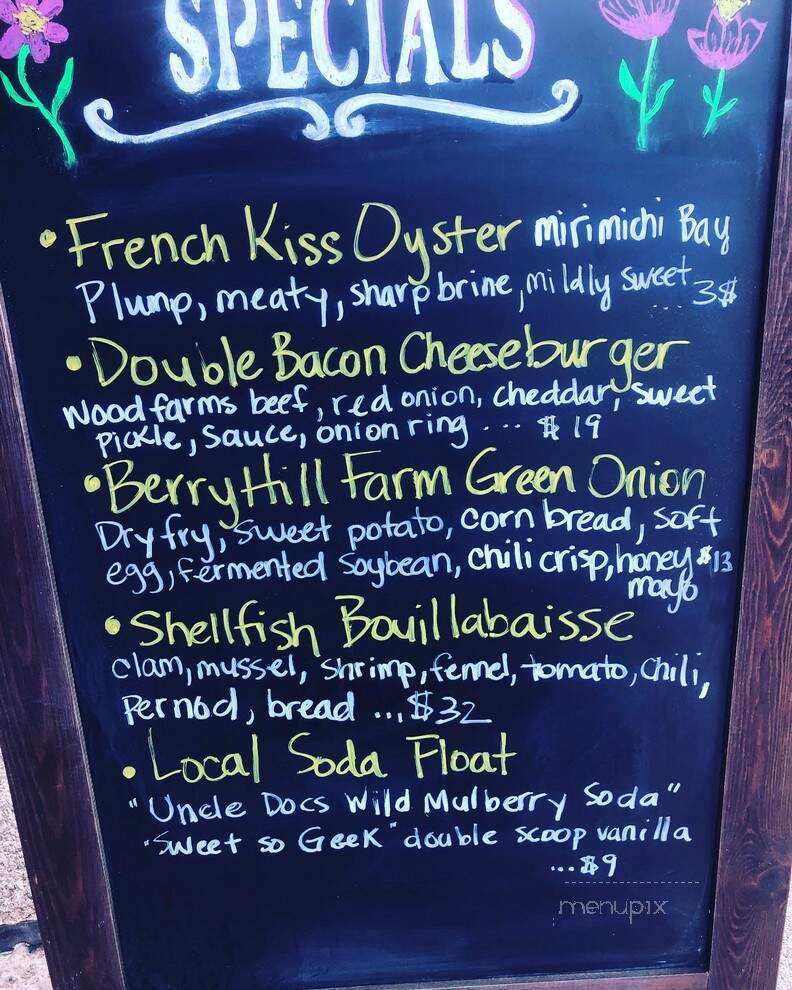 SPECIALS
• French Kiss Oyster mirimichi Bay
Plump, meaty, sharp brine, mildly sweet ... 3$
• Double Bacon Cheeseburger
Wood farms beef, red onion, cheddar, sweet
pickle, sauce, onion ring ... $19
• Berry Hill Farm Green Onion
Dry fry, sweet potato, corn bread, soft
egg, fermented soybean, chili crisp, honey $13
mayo
• Shellfish Bouillabaisse
clam, mussel, shrimp, fennel, tomato, chili,
Pernod, bread ... $32
• Local Soda Float
"Uncle Docs Wild Mulberry Soda"
"Sweet so Geek" double scoop vanilla
... $9
menupix